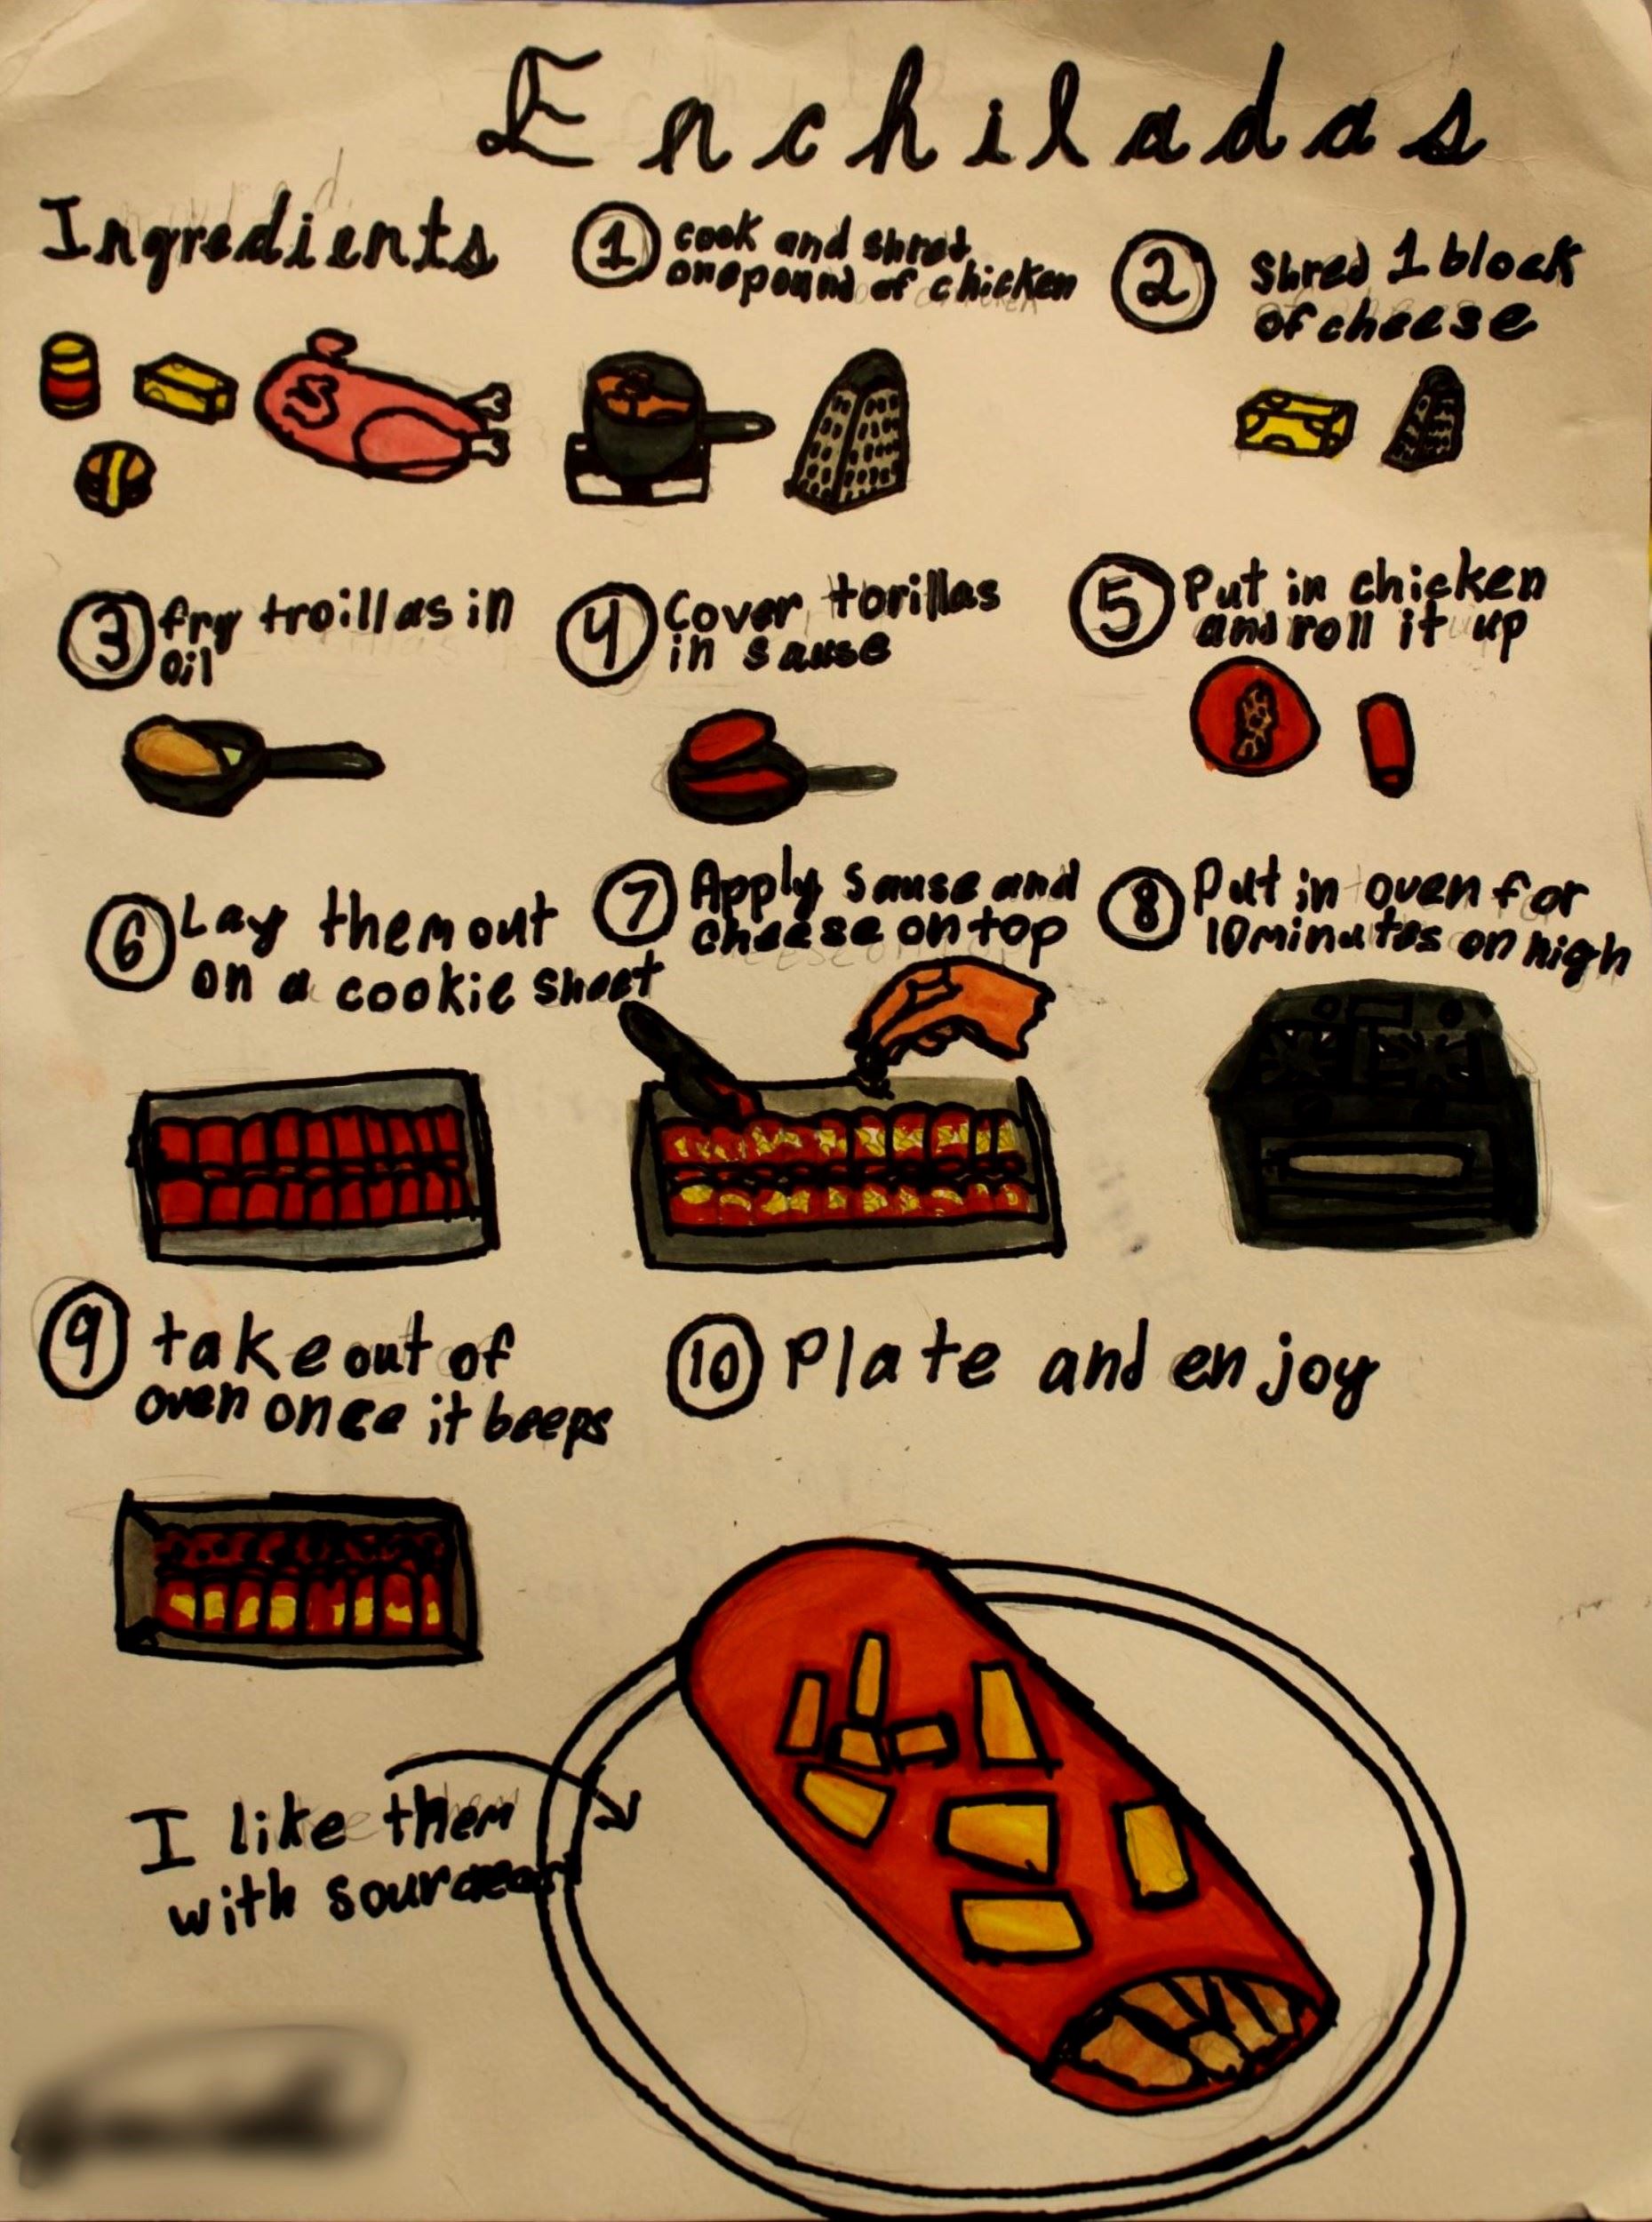 Enchiladas
Ingredients
1 cook and shred
one pound of chicken
2 Shred 1 block
of cheese
3 fry troillas in
oil
4 Cover torillas
in sause
5 Put in chicken
and roll it up
6 Lay them out
on a cookie sheet
7 Apply sause and
cheese on top
8 Put in oven for
10 minutes on high
9 take out of
oven once it beeps
10 Plate and enjoy
I like them
with sour